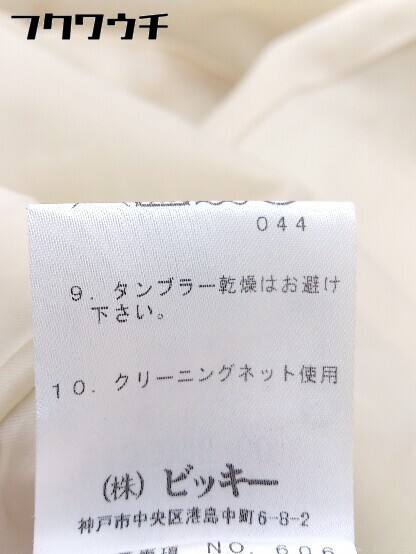 フクワウチ
044
9. タンブラー乾燥はお避け
下さい。
10. クリーニングネット使用
(株) ビッキー
神戸市中央区港島中町6-8-2
NO. 606